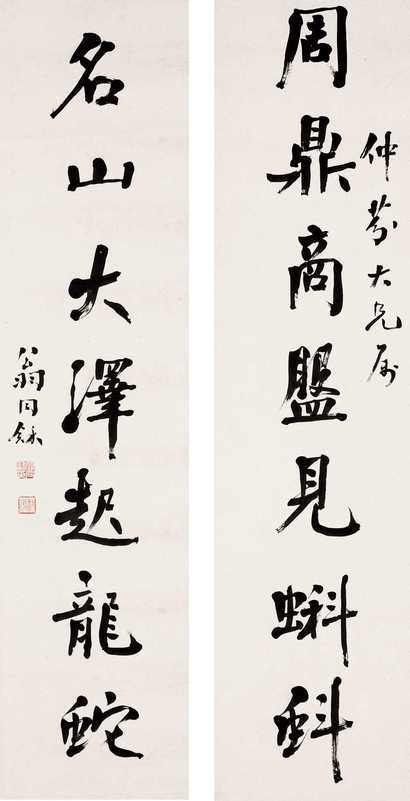 周鼎商盤見蝌蚪
仲芬大兄属
名山大澤起龍蛇
翁同龢